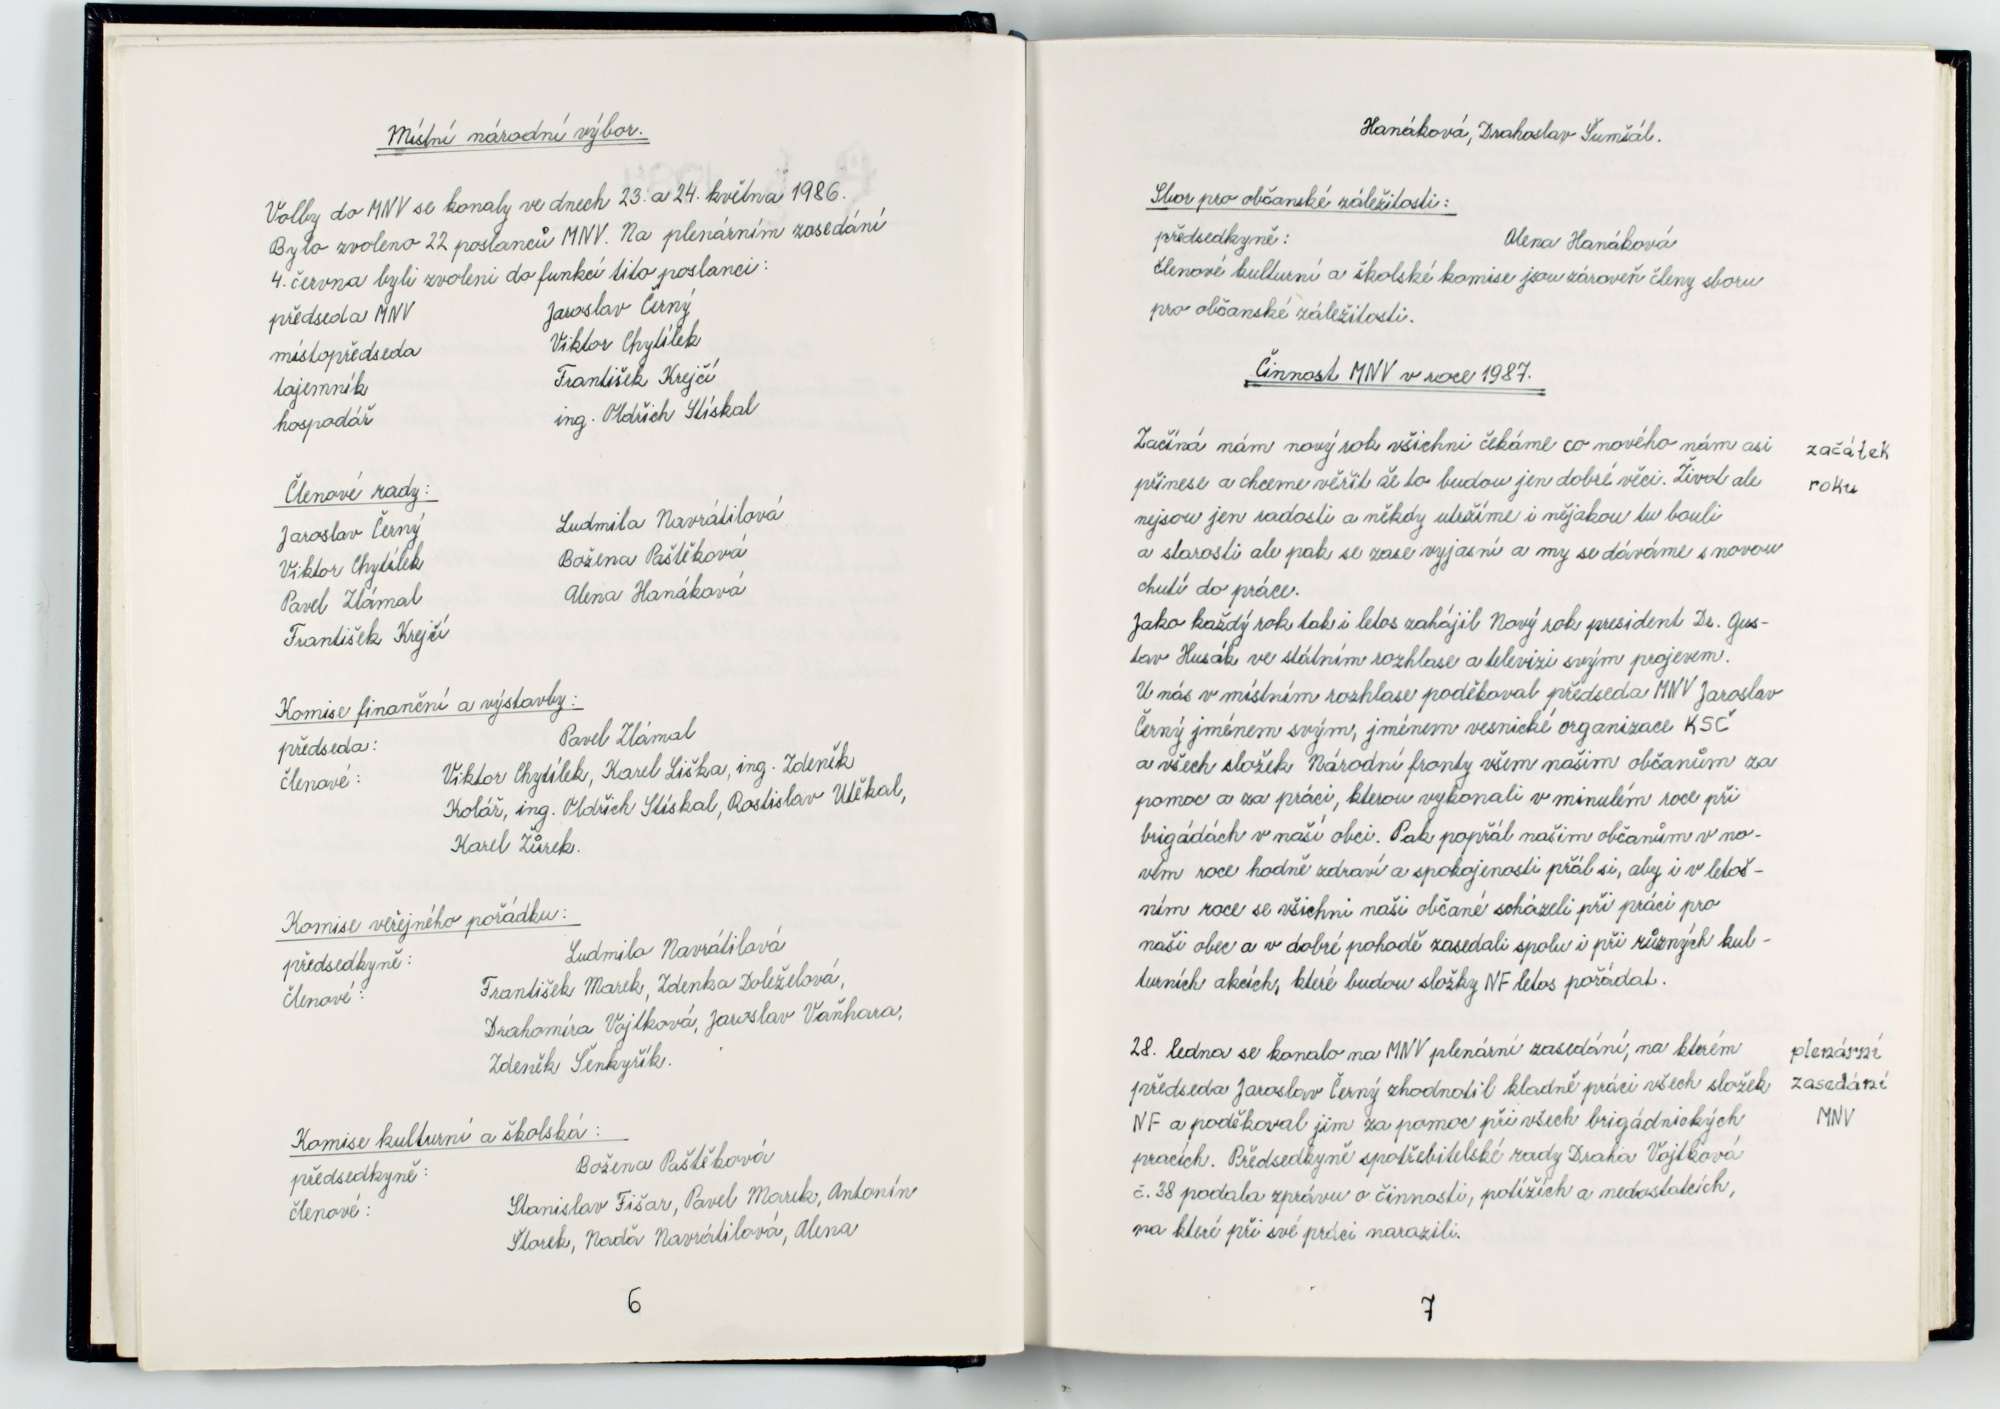 Místní národní výbor.
Volby do MNV se konaly ve dnech 23. a 24. května 1986.
Bylo zvoleno 22 poslanců MNV. Na plenárním zasedání
4. června byli zvoleni do funkcí tito poslanci:
předseda MNV Jaroslav Černý
místopředseda Viktor Chytílek
tajemník František Krejčí
hospodář ing. Oldřich Stískal
Členové rady:
Jaroslav Černý Ludmila Navrátilová
Viktor Chytílek Božena Paštěková
Pavel Zlámal Alena Hanáková
František Krejčí
Komise finanční a výstavby:
předseda: Pavel Zlámal
členové: Viktor Chytílek, Karel Liška, ing. Zdeněk
Kolář, ing. Oldřich Stískal, Rostislav Utěkal,
Karel Žůrek.
Komise veřejného pořádku:
předsedkyně: Ludmila Navrátilová
členové: František Marek, Zdenka Doleželová,
Drahomíra Vojtková, Jaroslav Vaňhara,
Zdeněk Šenkyřík.
Komise kulturní a školská:
předsedkyně: Božena Paštěková
členové: Stanislav Fišar, Pavel Marek, Antonín
Štorek, Naďa Navrátilová, Alena
6
Hanáková, Drahoslav Šumšál.
Sbor pro občanské záležitosti:
předsedkyně: Alena Hanáková
členové kulturní a školské komise jsou zároveň členy sboru
pro občanské záležitosti.
Činnost MNV v roce 1987.
Začíná nám nový rok všichni čekáme co nového nám asi
přinese a chceme věřit že to budou jen dobré věci. Život ale
nejsou jen radosti a někdy utržíme i nějakou tu bouli
a starosti ale pak se zase vyjasní a my se dáváme s novou
chutí do práce.
začátek
roku
Jako každý rok tak i letos zahájil Nový rok president Dr. Gus-
tav Husák ve státním rozhlase a televizi svým projevem.
U nás v místním rozhlase poděkoval předseda MNV Jaroslav
Černý jménem svým, jménem vesnické organizace KSČ
a všech složek Národní fronty všem našim občanům za
pomoc a za práci, kterou vykonali v minulém roce při
brigádách v naší obci. Pak popřál našim občanům v no-
vém roce hodně zdraví a spokojenosti přál si, aby i v letoš-
ním roce se všichni naši občané scházeli při práci pro
naši obec a v dobré pohodě zasedali spolu i při různých kul-
turních akcích, které budou složky NF letos pořádat.
28. ledna se konalo na MNV plenární zasedání, na kterém
předseda Jaroslav Černý zhodnotil kladně práci všech složek
NF a poděkoval jim za pomoc při všech brigádnických
pracích. Předsedkyně spotřebitelské rady Draha Vojtková
č. 38 podala zprávu o činnosti, potížích a nedostatcích,
na které při své práci narazili.
plenární
zasedání
MNV
7